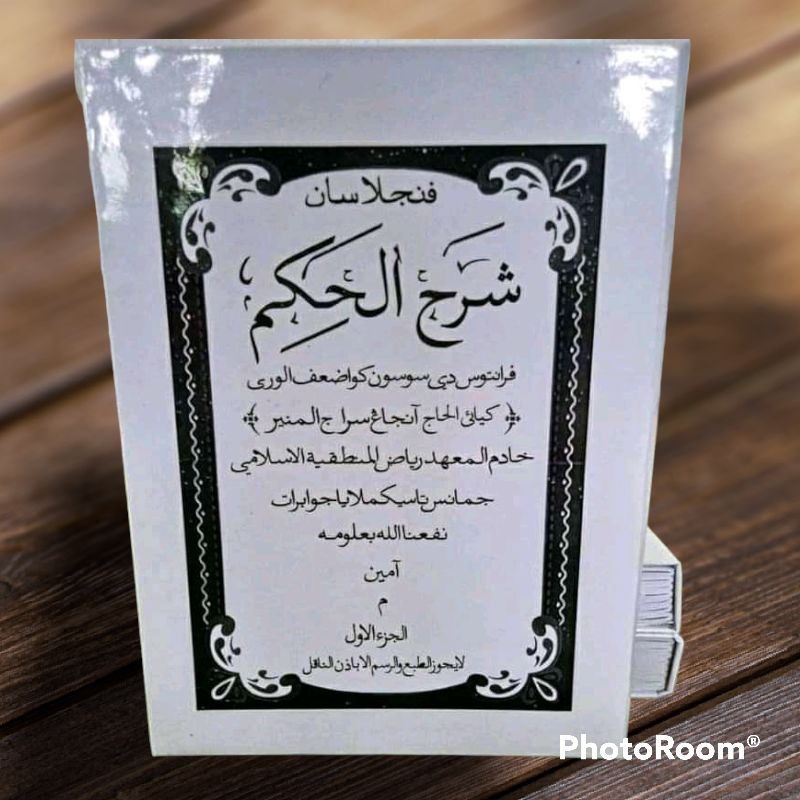 فنجلاسان
شَرَحْ الْحِكَمْ
فرانتوس دي سوسون كواضعف الوري
كياني الحاج آنجاغ سراج المنير
خادم المعهد رياض المنطقية الاسلامي
جمانس تاسيكملايا جوابرات
نفعنا الله بعلومه
آمين
م
الجزء الاول
لايجوز الطبع والرسم الا باذن الناقل
PhotoRoom®